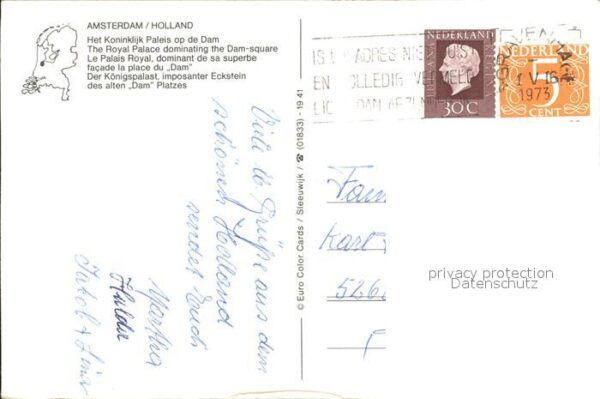 AMSTERDAM / HOLLAND
Het Koninklijk Paleis op de Dam
The Royal Palace dominating the Dam-square
Le Palais Royal, dominant de sa superbe
façade la place du „Dam"
Der Königspalast, imposanter Eckstein
des alten „Dam" Platzes
Viele lb. Grüße aus dem
schönen Holland
sendet Euch
Martha
Hulda
Jakob &
© Euro Color Cards / Sleeuwijk / ☎ (01833) - 19 41
NEDERLAND
30 C
NEDERLAND
5
CENT
IS ADRES
EN VOLLEDIG VERMELD
1973
Fam
Karl
526
privacy protection
Datenschutz